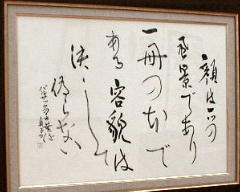 顔は一つの
風景であり
一冊の本で
ある容貌は
決して
偽らない